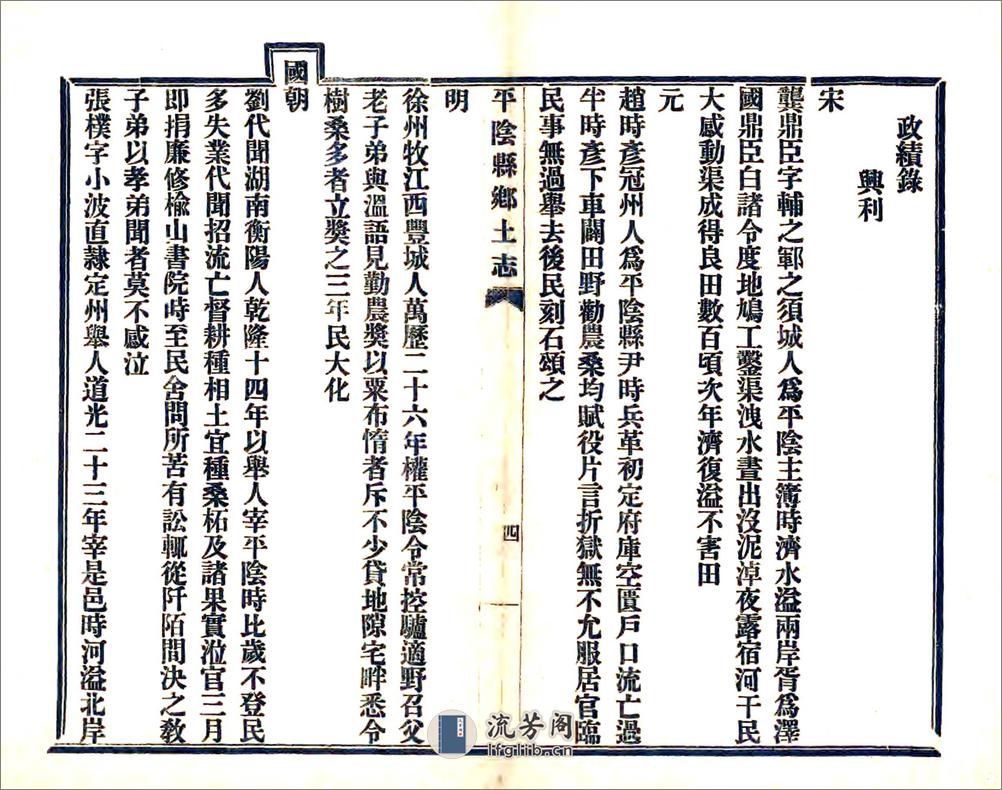 政績錄
興利
宋
龔鼎臣字輔之鄆之須城人爲平陰主簿時濟水溢兩岸胥爲澤
國鼎臣白諸令度地鳩工鑿渠洩水晝出沒泥淖夜露宿河干民
大感動渠成得良田數百頃次年濟復溢不害田
元
趙時彥冠州人爲平陰縣尹時兵革初定府庫空匱戶口流亡過
半時彥下車闢田野勸農桑均賦役片言折獄無不允服居官臨
民事無過舉去後民刻石頌之
平陰縣鄉土志
四
明
徐州牧江西豐城人萬歷二十六年權平陰令常控驢適野召父
老子弟與溫語見勤農獎以粟布惰者斥不少貸地隙宅畔悉令
樹桑多者立獎之三年民大化
國朝
劉代聞湖南衡陽人乾隆十四年以舉人宰平陰時比歲不登民
多失業代聞招流亡督耕種相土宜種桑柘及諸果實涖官三月
即捐廉修榆山書院時至民舍問所苦有訟輒從阡陌間決之敎
子弟以孝弟聞者莫不感泣
張樸字小波直隷定州舉人道光二十三年宰是邑時河溢北岸
流芳阁
lfglib.cn